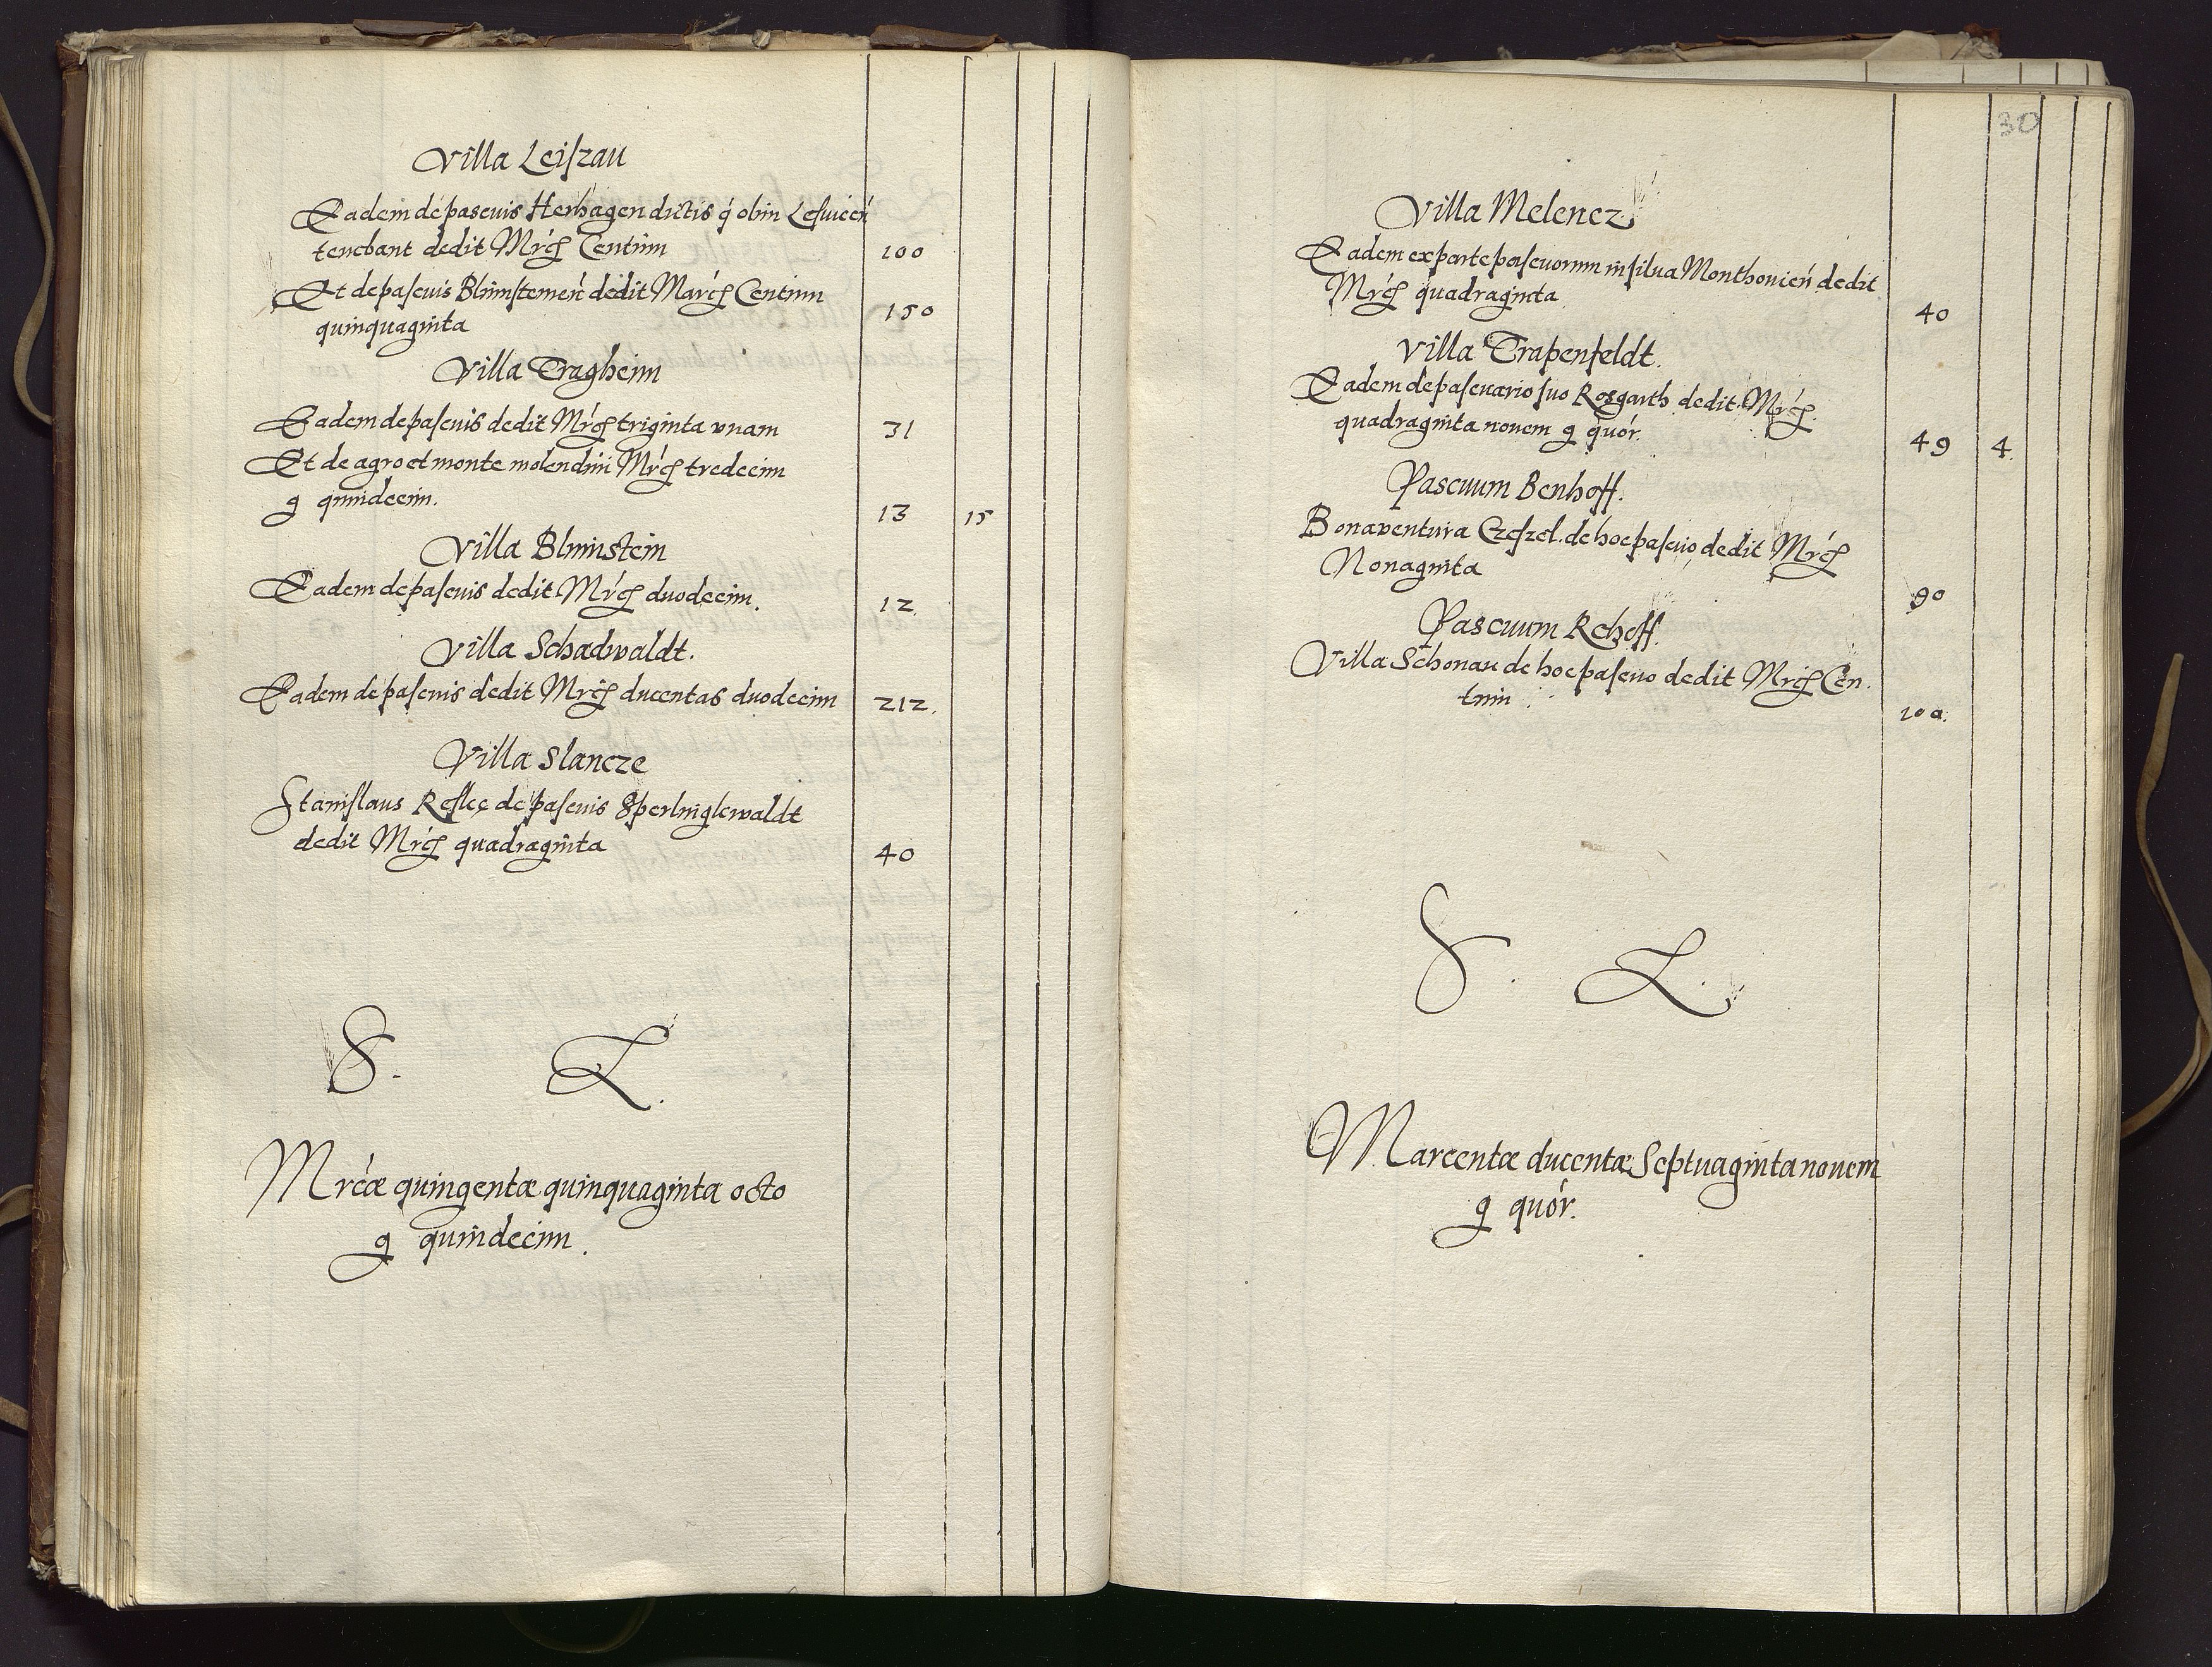 Villa Leiszau
Eadem de pascuis Herhagen dictis q̃ olim Lesuiceń
tenebant dedit Mrćs Centum
100
Et de pascuis Blumstemeń dedit Marćs Centum
quinquaginta
150
Villa Tragheim
Eadem de pascuis dedit Mrćs triginta vnam
31
Et de agro et monte molendini Mrćs tredecim
g quindecim.
13 15
Villa Blumstein
Eadem de pascuis dedit Mrćs duodecim.
12.
Villa Schadwaldt.
Eadem de pascuis dedit Mrćs ducentas duodecim
212.
Villa Slancze
Stanislaus Reslęę de pascuis Sperlinglewaldt
dedit Mrćs quadraginta
40
S. L.
Mrćæ quingentæ quinquaginta octo
g quindecim.
30
Villa Melencz
Eadem ex parte pascuorum in silua Monthouień dedit
Mrćs quadraginta
40
Villa Trapenfeldt.
Eadem de pascuario suo Rosgarth dedit Mrćs.
quadraginta nouem g quór.
49 4.
Pascuum Benhoff.
Bonaventura Czeszel. de hoc pascuo dedit Mrćs
Nonaginta
90
Pascuum Rehoff.
Villa Schonau de hoc pascuo dedit Mrćs Cen.
tum.
100.
S. L.
Marcentæ ducentæ Septuaginta nouem
g quór.